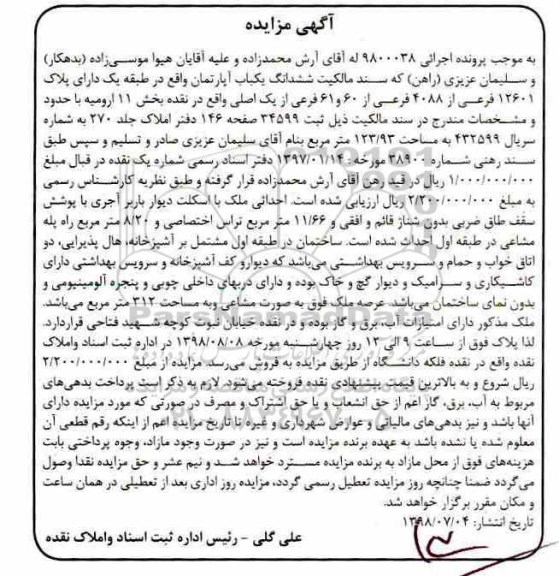 آگهی مزایده
به موجب پرونده اجرائی ۹۸۰۰۰۳۸ له آقای آرش محمدزاده و علیه آقایان هیوا موسی‌زاده (بدهکار)
و سلیمان عزیزی (راهن) که سند مالکیت ششدانگ یکباب آپارتمان واقع در طبقه یک دارای پلاک
۱۲۶۰۱ فرعی از ۴۰۸۸ فرعی از ۶۰ و۶۱ فرعی از یک اصلی واقع در نقده بخش ۱۱ ارومیه با حدود
و مشخصات مندرج در سند مالکیت ذیل ثبت ۳۴۵۹۹ صفحه ۱۴۶ دفتر املاک جلد ۲۷۰ به شماره
سریال ۴۳۲۵۹۹ به مساحت ۱۲۳/۹۳ متر مربع بنام آقای سلیمان عزیزی صادر و تسلیم و سپس طبق
سند رهنی شماره ۳۸۹۰۰ مورخه: ۱۳۹۷/۰۱/۱۴ دفتر اسناد رسمی شماره یک نقده در قبال مبلغ
۱/۰۰۰/۰۰۰/۰۰۰ ریال در قید رهن آقای آرش محمدزاده قرار گرفته و طبق نظریه کارشناس رسمی
به مبلغ ۲/۲۰۰/۰۰۰/۰۰۰ ریال ارزیابی شده است. احداثی ملک با اسکلت دیوار باربر آجری با پوشش
سقف طاق ضربی بدون شناژ قائم و افقی و ۱۱/۶۶ متر مربع تراس اختصاصی و ۸/۲۰ متر مربع راه پله
مشاعی در طبقه اول احداث شده است. ساختمان در طبقه اول مشتمل بر آشپزخانه، هال پذیرایی، دو
اتاق خواب و حمام و سرویس بهداشتی می‌باشد که دیوارو کف آشپزخانه و سرویس بهداشتی دارای
کاشیکاری و سرامیک و دیوار گچ و خاک بوده و دارای دربهای داخلی چوبی و پنجره آلومینیومی و
بدون نمای ساختمان می‌باشد. عرصه ملک فوق به صورت مشاعی وبه مساحت ۳۱۲ متر مربع می‌باشد.
ملک مذکور دارای امتیازات آب، برق و گاز بوده و در نقده خیابان ثبوت کوچه شهید فتاحی قراردارد.
لذا پلاک فوق از ساعت ۹ الی ۱۲ روز چهارشنبه مورخه ۱۳۹۸/۰۸/۰۸ در اداره ثبت اسناد واملاک
نقده واقع در نقده فلکه دانشگاه از طریق مزایده به فروش می‌رسد. مزایده از مبلغ ۲/۲۰۰/۰۰۰/۰۰۰
ریال شروع و به بالاترین قیمت پیشنهادی نقده فروخته می‌شود. لازم به ذکر است پرداخت بدهی‌های
مربوط به آب، برق، گاز اعم از حق انشعاب و یا حق اشتراک و مصرف در صورتی که مورد مزایده دارای
آنها باشد و نیز بدهی‌های مالیاتی و عوارض شهرداری و غیره تا تاریخ مزایده اعم از اینکه رقم قطعی آن
معلوم شده یا نشده باشد به عهده برنده مزایده است و نیز در صورت وجود مازاد، وجوه پرداختی بابت
هزینه‌های فوق از محل مازاد به برنده مزایده مسترد خواهد شد و نیم عشر و حق مزایده نقدا وصول
می‌گردد ضمنا چنانچه روز مزایده تعطیل رسمی گردد، مزایده روز اداری بعد از تعطیلی در همان ساعت
و مکان مقرر برگزار خواهد شد.
تاریخ انتشار: ۱۳۹۸/۰۷/۰۴
علی گلی - رئیس اداره ثبت اسناد واملاک نقده